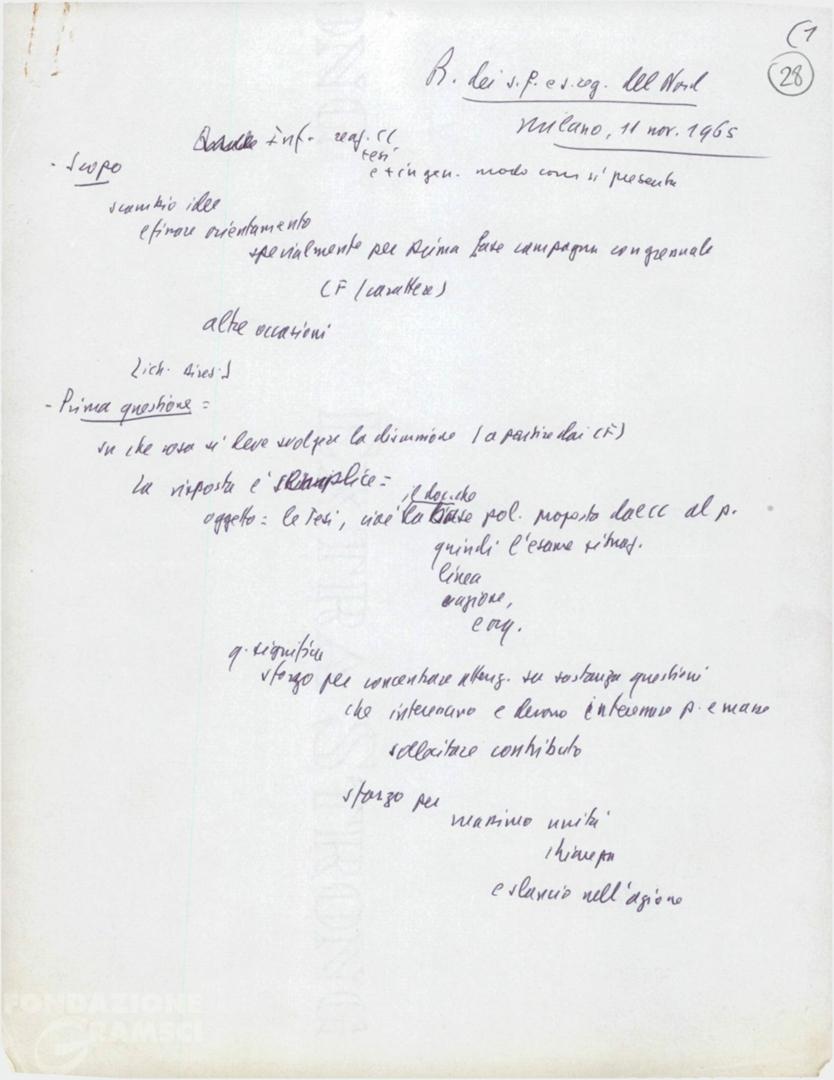 (1
28
R. dei s.f. e s. reg. del Nord
Milano, 11 nov. 1965
Inf. reaz. CC
tesi
e + in gen. modo come si presenta
- Scopo
scambio idee
e fissare orientamento
specialmente per prima fase campagna congressuale
CF (carattere)
altre occasioni
- Prima questione =
su che cosa si deve svolgere la discussione (a partire dai CF)
La risposta è semplice =
oggetto = le Tesi, cioè la base pol. proposta dal CC al p.
quindi l'esame situaz.
linea
azione,
e org.
q. significa
sforzo per concentrare attenz. su sostanza questioni
che interessano e devono interessare p. e masse
sollecitare contributo
sforzo per
massimo unità
chiarezza
e slancio nell'azione
FONDAZIONE
GRAMSCI